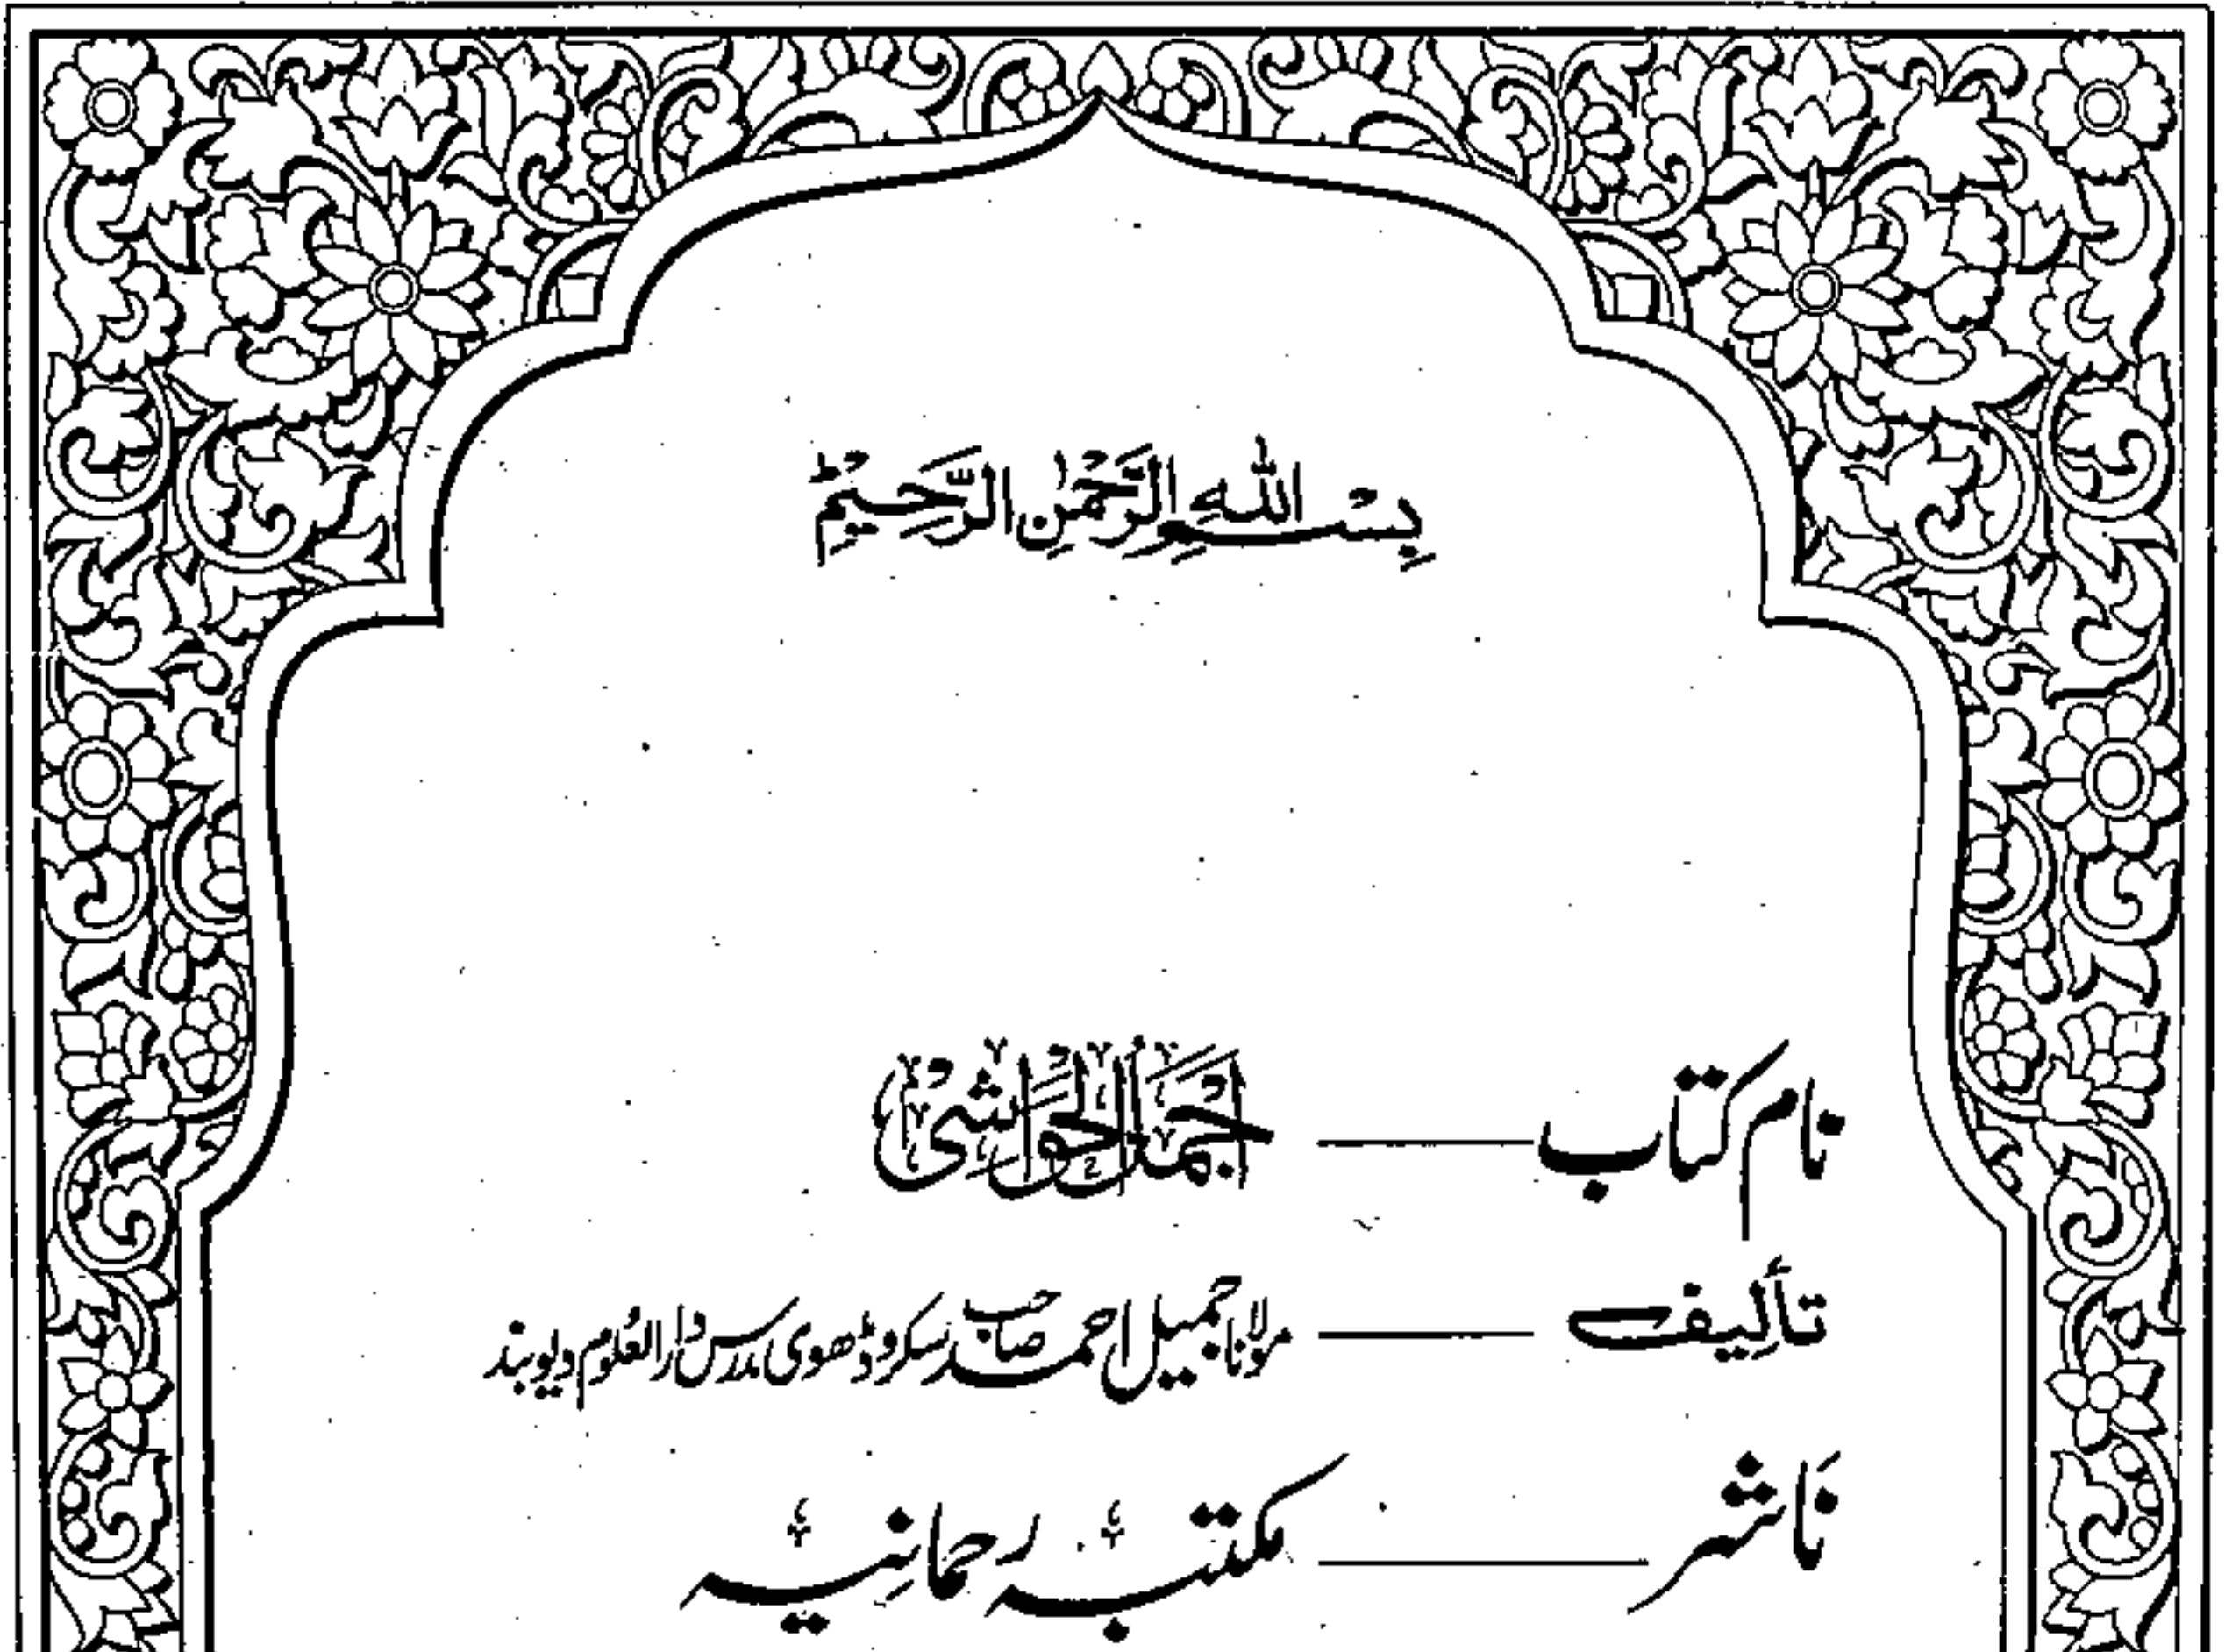 بِسْمِ اللهِ الرَّحْمٰنِ الرَّحِيْمِ
نام کتاب ——— اجمل الحواشی
تألیف ——— مولانا جمیل احمد صاحب سکروڈھوی مدرس دارالعلوم دیوبند
ناشر ——— مکتبہ رحمانیہ